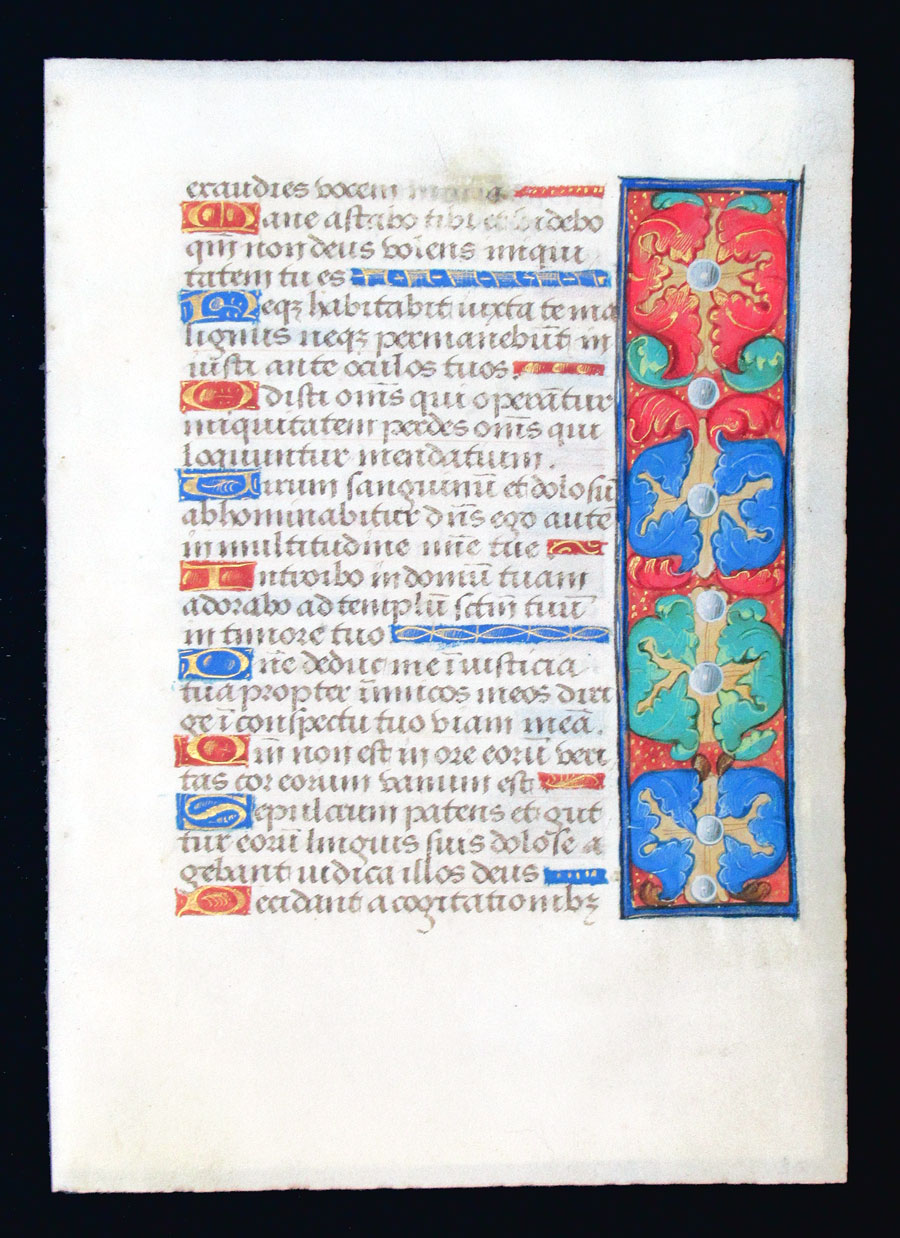 exaudies vocem meam
Mane astabo tibi et videbo
qm̄ non deus volens iniqui
tatem tu es
Neqꝫ habitabit iuxta te ma
lignus neqꝫ permanebūt in
iusti ante oculos tuos.
Odisti om̄s qui operātur
iniquitatem perdes om̄s qui
loquuntur mendatium.
Uirum sanguinū et dolosū
abhominabitur dn̄s ego autē
in multitudine mīe tue
Introibo in domū tuam
adorabo ad templū sctm̄ tuū
in timore tuo
Dn̄e deduc me ī iusticia
tua propter īimicos meos diri
ge ī conspectu tuo viam meā.
Qm̄ non est in ore eorū veri
tas cor eorum vanum est
Sepulcrum patens et gut
tur eorū linguis suis dolose a
gebant iudica illos deus
Decidant a cogitationibꝫ